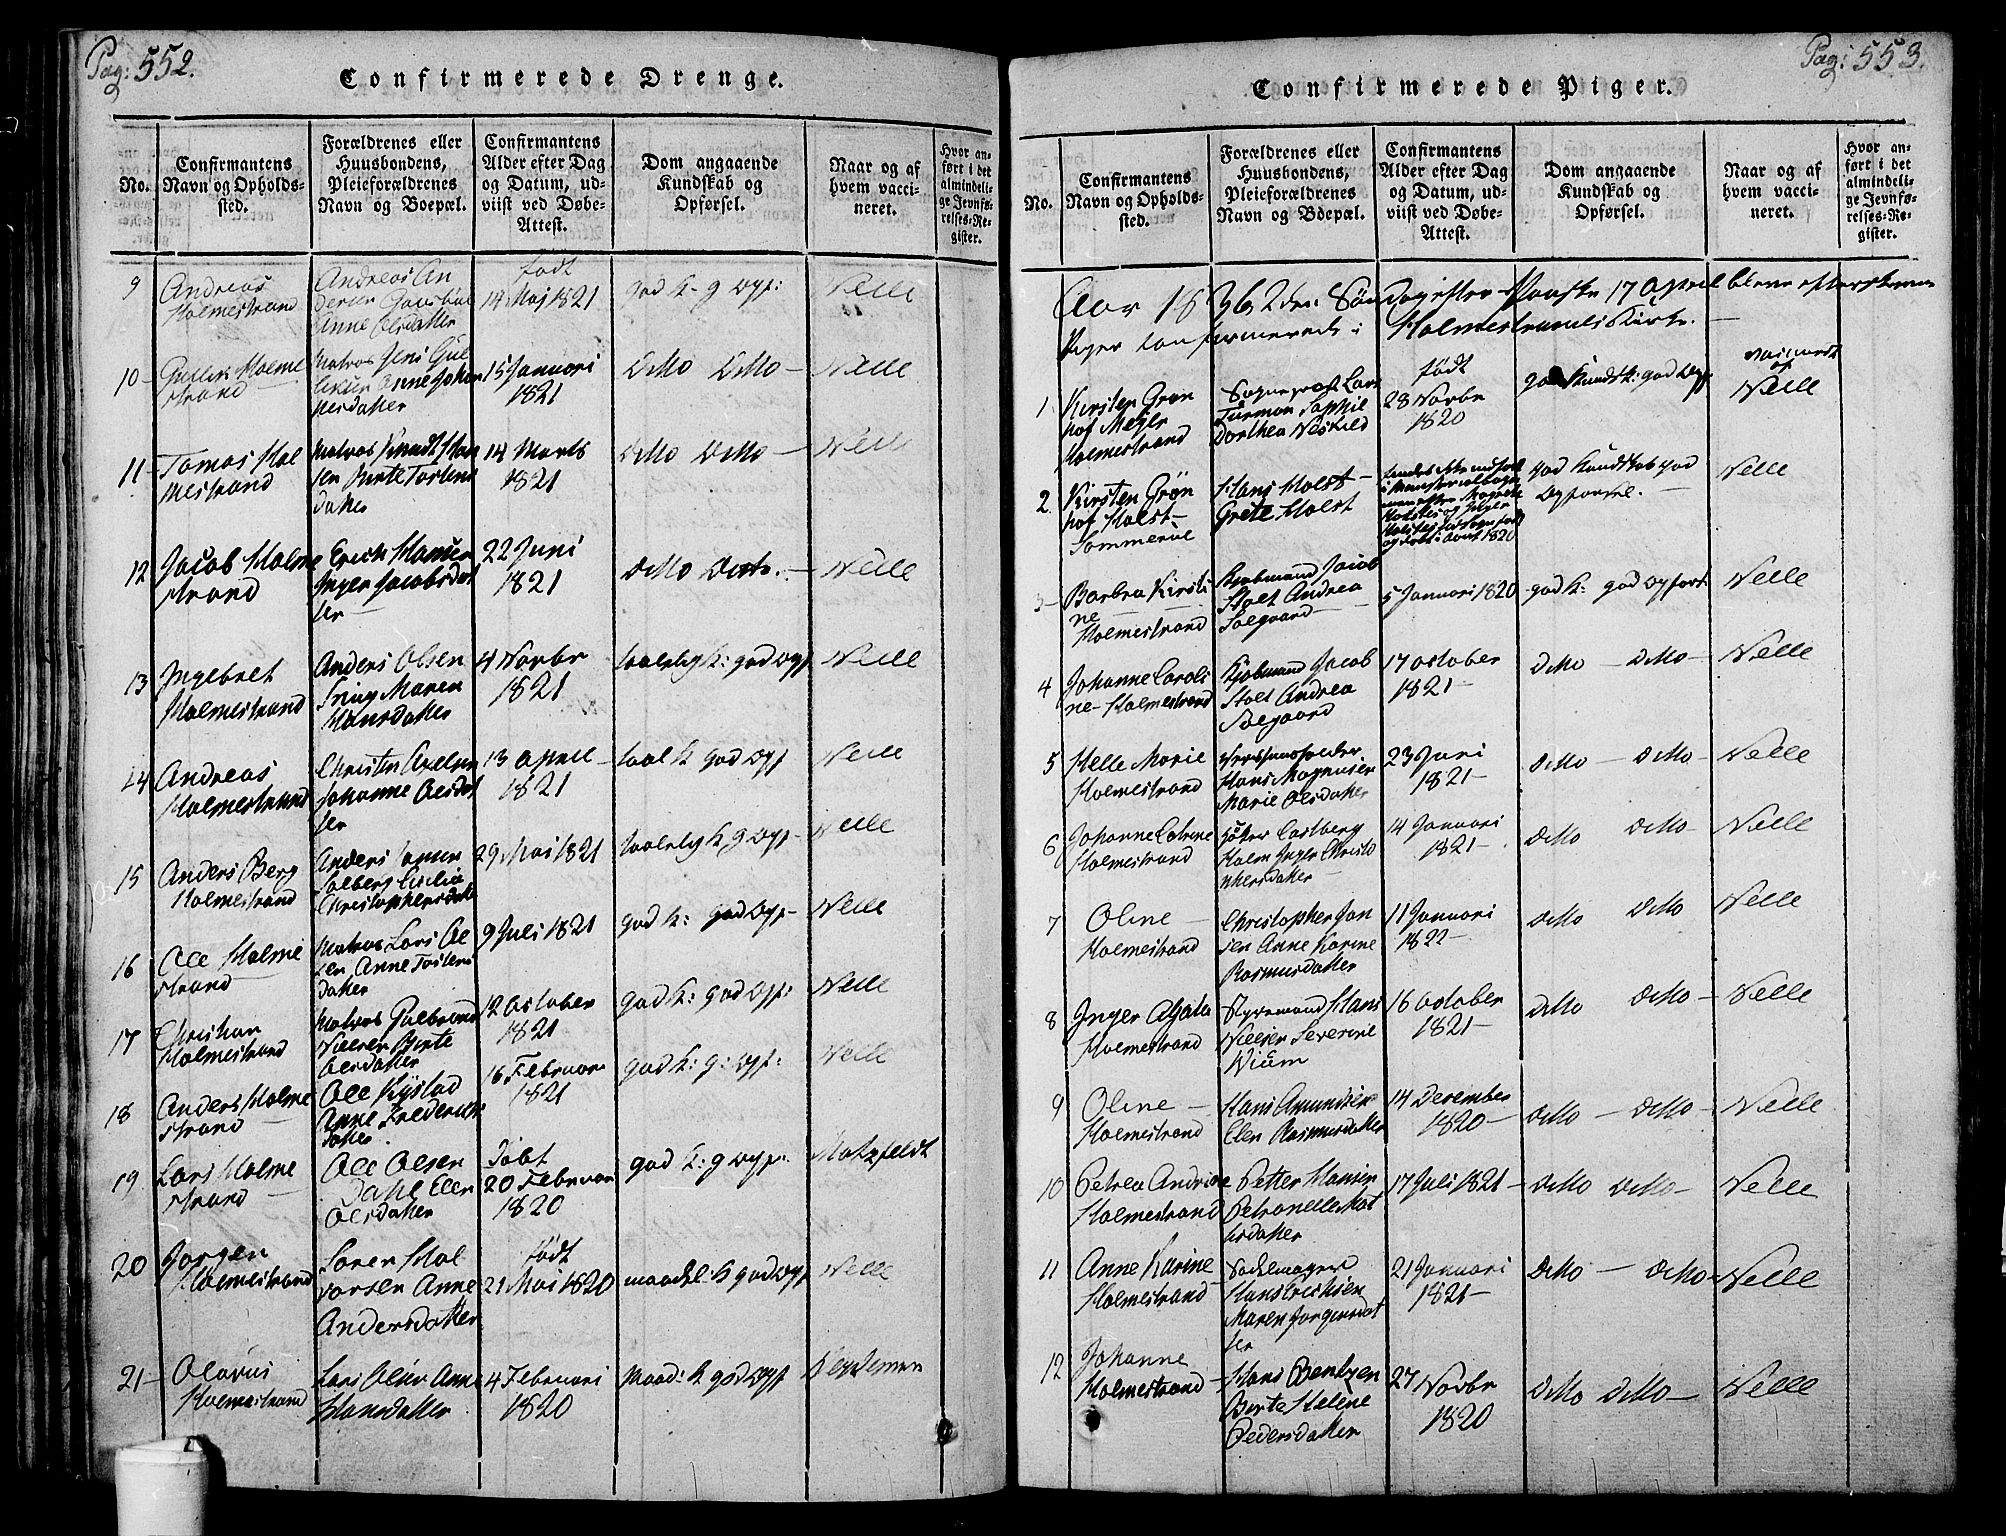 Pag: 552.
Confirmerede Drenge.
No.
Confirmantens
Navn og Opholds-
sted.
Forældrenes eller
Huusbondens,
Pleieforældrenes
Navn og Boepæl.
Confirmantens
Alder efter Dag
og Datum, ud-
viist ved Døbe-
Attest.
Dom angaaende
Kundskab og
Opførsel.
Naar og af
hvem vacci-
neret.
Hvor an-
ført i det
almindeli-
ge Jevnfø-
relses-Re-
gister.
9
Andreas
Holmestrand
Andreas An
dersen
Anne Olsdatter
født
14 Maj 1821
god K- g Opf:
Nelle
10-
Gullik Holme
strand
Matros Jens Gul
liksen Anne Johan
nesdatter
15 Januari
1821
Ditto Ditto-
Nelle
11-
Tomas Hol
mestrand
Matros Knudt Han
sen Birte Torstens
datter
14 Marts
1821
Ditto Ditto-
Nelle
12
Jacob Holme
strand
Erich Hansen
Inger Jacobsdat
ter
22 Juni
1821
Ditto Ditto.-
Nelle
13
Ingebret
Holmestrand
Anders Olsen
Maren
Hansdatter
4 Novbr
1821
taalelig K: god Opf
Nelle
14
Andreas
Holmestrand
Christen Axelsen
Johanne Olsdat
ter
13 April-
1821
taal K god Opf
Nelle
15
Anders Berg
Holmestrand
Anders
Solberg Cicilia
Christophersdatter
29 Mai 1821
taalelig K g Opf-
Nelle
16
Ole Holme
strand
Matros Lars Ol
sen Anne Torstens
datter
9 Juli 1821
god K: god Opf-
Nelle
17
Christian
Holmestrand
Matros Gulbrand
Nielsen Birte
Olsdatter
12 October
1821
god K: god Opf:
Nelle
18
Anders Holme
strand
Ole Rystad
Anne Fredericks
datter
16 Februar
1821
god K: g: Opf:
Nelle
19
Lars Holme
strand
Ole Olsen
Dahl Elen
Olsdatter
Døbt
20 Februar
1820
god K: g Opf:
Motzfeldt
20
Jørgen
Holmestrand
Søren Hal
vorsen Anne
Andersdatter
født
21 Mai 1820
maadel: K god Opf
Nelle
21-
Olavus
Holmestrand
Lars Olsen Anne
Hansdatter
4 Februari
1820
Maad: K god Opf
Pag: 553.
Confirmerede Piger.
No.
Confirmantens
Navn og Opholds-
sted.
Forældrenes eller
Huusbondens,
Pleieforældrenes
Navn og Boepæl.
Confirmantens
Alder efter Dag
og Datum, ud-
viist ved Døbe-
Attest.
Dom angaaende
Kundskab og
Opførsel.
Naar og af
hvem vacci-
neret.
Hvor an-
ført i det
almindeli-
ge Jevnfø-
relses-Re-
gister.
Aar 1836, 2den Søndag efter Paaske 17 April bleve efterskrevne
Piger confirmerede i Holmestrands Kirke.-
1.
Kirsten Grøn
hof Meyer
Holmestrand
Sogneprest Lars
Türmon Sophie
Dorthea Neskild
født
28 Novbr
1820
god Kundsk: god Opf
af
Nelle
2.
Kirsten Grøn
hof Holst-
Hans Holst-
Grete Holst
god Kundskab god
Opførsel.-
Nelle
3-
Barbra Kirsti
ne
Holmestrand
Kjøbmand Jacob
Stolt Andrea
Solgaard
5 Januari 1820
god K: god Opførs.
Nelle
4
Johanne Caroli
ne- Holmestrand
Kjøbmand Jacob
Stolt Andrea
Solgaard
17 October
1821-
Ditto - Ditto-
Nelle
5
Helle Marie
Holmestrand
Hans Magnusen
Marie Olsdatter
23 Juni
1821-
Ditto- Ditto-
Nelle
6
Johanne Catrine
Holmestrand
Carlberg
Holm Inger Christo
phersdatter-
14 Januari
1821-
Ditto Ditto-
Nelle
7
Oline-
Holmestrand
Christopher Jan
sen Anne Karine
Rasmusdatter
11 Januari
1822-
Ditto Ditto
Nelle
8
Inger Agata
Holmestrand
Styrmand Hans
Nielsen Severine
Wium
16 October
1821-
Ditto Ditto-
Nelle
9
Oline-
Holmestrand
Hans Amundsen
Elen Rasmusdatter
14 December
1820-
Ditto- Ditto-
Nelle
10
Petrea Andrine
Holmestrand
Petter Hansen
Petronelle Mat
hisdatter
17 Juli 1821-
Ditto Ditto-
Nelle
11
Anne Karine
Holmestrand
Sadelmager
Hans Erichsen
Maren Jørgensdat
ter
21 Januari
1821-
Ditto- Ditto-
Nelle
12
Johanne
Holmestrand
Hans Bentzen
Birte Helene
Pedersdatter
27 Novbr
1820
Ditto Ditto-
Nelle